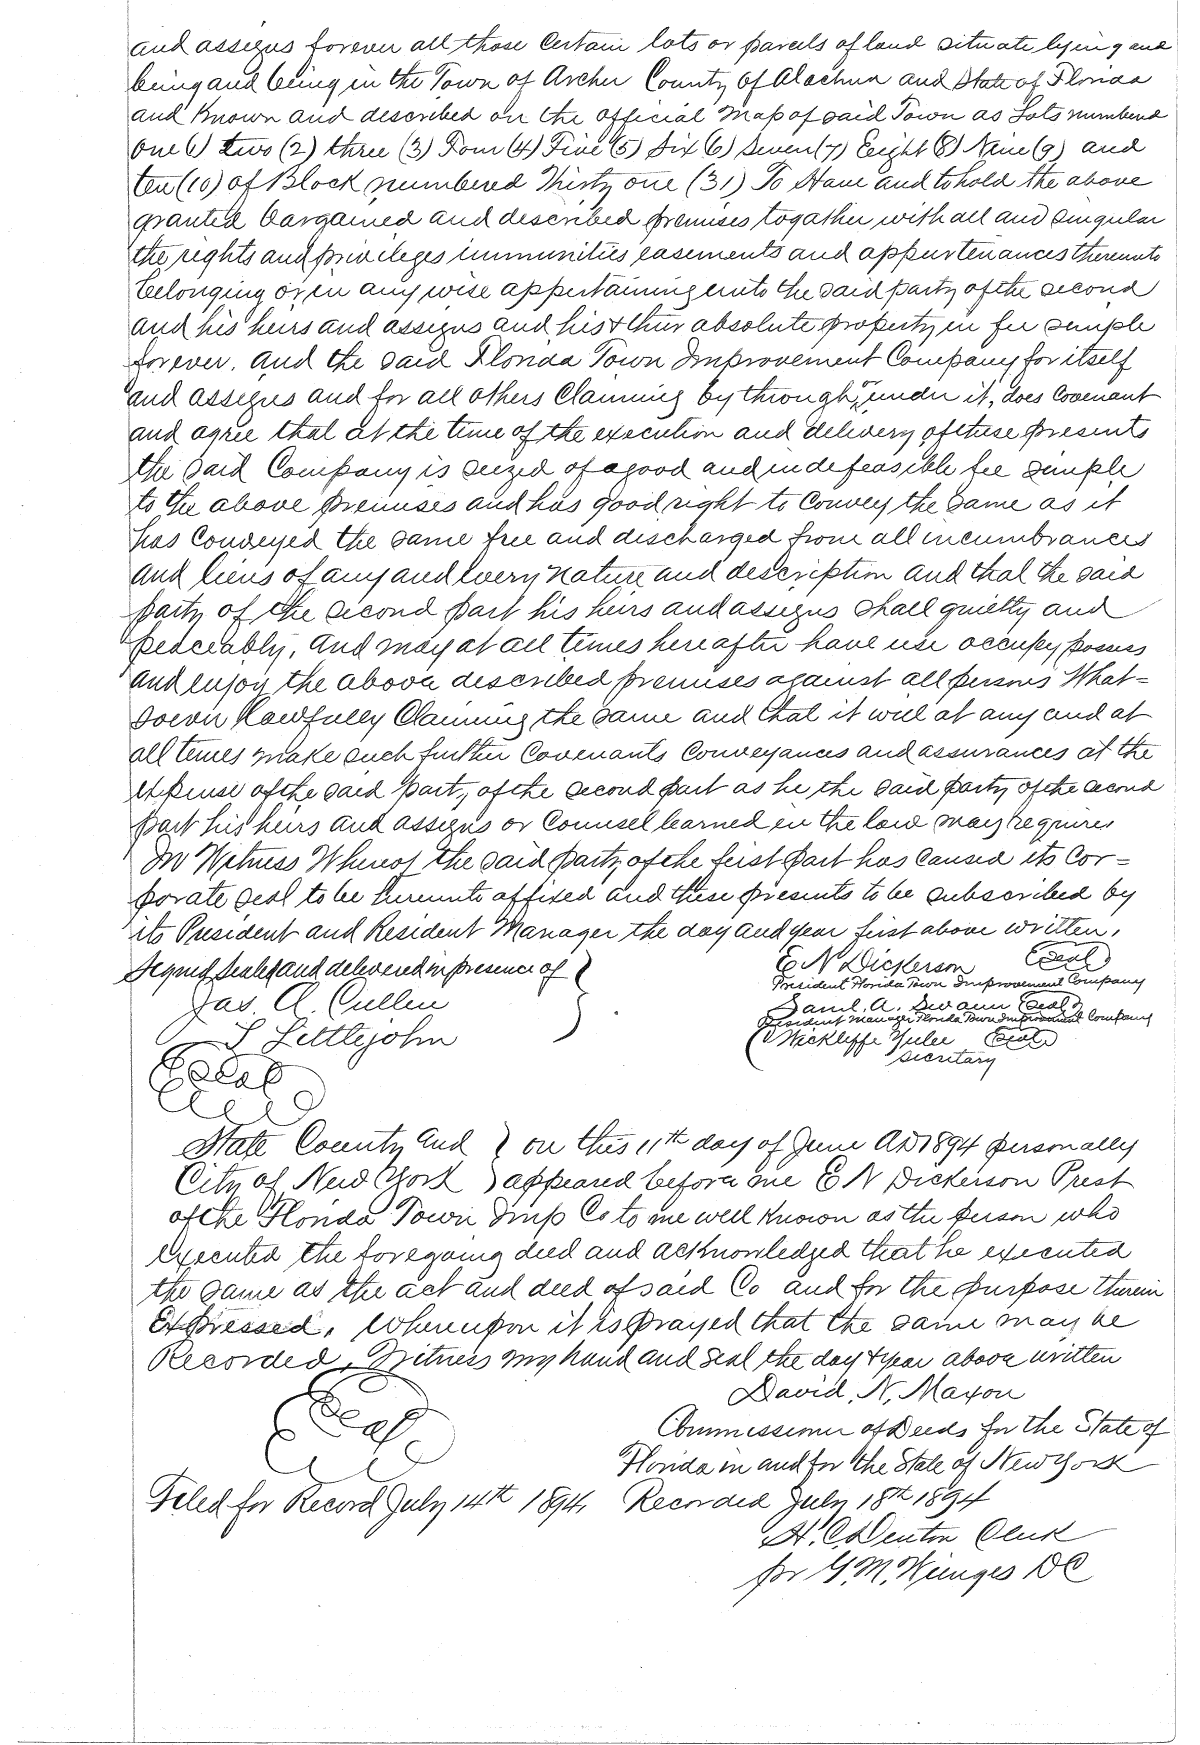 and assigns forever all those Certain lots or parcels of land situate lying and
being and being in the Town of Archer County of Alachua and State of Florida
and Known and described on the official Map of said Town as Lots numbered
One (1) two (2) three (3) Four (4) Five (5) Six (6) Seven (7) Eight (8) Nine (9) and
ten (10) of Block numbered Thirty one (31) To Have and to hold the above
granted bargained and described premises togather with all and singular
the rights and privileges immunities easements and appurtenances thereunto
belonging or in any wise appertaining unto the said party of the second
and his heirs and assigns and his & their absolute property in fee simple
forever. and the said Florida Town Improvement Company for itself
and assigns and for all others Claiming by through, or under it, does Covenant
and agree that at the time of the execution and delivery of these presents
the said Company is seized of a good and indefeasible fee simple
to the above premises and has good right to Convey the same as it
has Conveyed the same free and discharged from all incumbrances
and liens of any and every nature and description and that the said
party of the second part his heirs and assigns shall quietly and
peaceably, and may at all times hereafter have use occupy possess
and enjoy the above described premises against all persons What-
soever lawfully Claiming the same and that it will at any and at
all times make such further Covenants Conveyances and assurances at the
expense of the said party of the second part as he the said party of the second
part his heirs and assigns or Counsel learned in the law may require
In Witness Whereof the said party of the first part has Caused its Cor-
porate seal to be hereunto affixed and these presents to be subscribed by
its President and Resident Manager the day and year first above written.
Signed Sealed and delivered in presence of } E N Dickerson (Seal)
President Florida Town Improvement Company
Jas. A. Cullen
Saml. A. Swann (Seal)
Resident Manager Florida Town Improvement Company
S Littlejohn
C Wickliffe Yulee (Seal)
Secretary
(Seal)
State County and } on this 11th day of June AD 1894 personally
City of New York } appeared before me E N Dickerson Prest
of the Florida Town Imp Co to me well Known as the person who
executed the foregoing deed and acknowledged that he executed
the same as the act and deed of said Co and for the purpose therein
Expressed. Whereupon it is prayed that the same may be
Recorded. Witness my hand and seal the day & year above written
David. N. Maxon
(Seal)
Commissioner of Deeds for the State of
Florida in and for the State of New York
Filed for Record July 14th 1894. Recorded July 18th 1894
H. C. Denton Clerk
pr G. M. Wienges DC